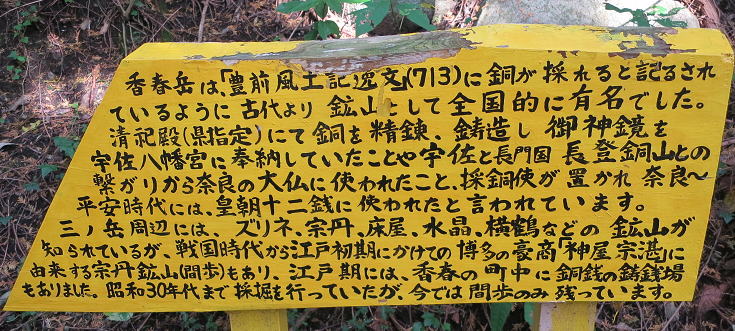 香春岳は、「豊前風土記逸文」(713)に銅が採れると記るされ
ているように古代より鉱山として全国的に有名でした。
清祀殿(県指定)にて銅を精錬、鋳造し御神鏡を
宇佐八幡宮に奉納していたことや宇佐と長門国長登銅山との
繋がりから奈良の大仏に使われたこと、採銅使が置かれ奈良〜
平安時代には、皇朝十二銭に使われたと言われています。
三ノ岳周辺には、ズリネ、宗丹、床屋、水晶、横鶴などの鉱山が
知られているが、戦国時代から江戸初期にかけての博多の豪商「神屋宗湛」に
由来する宗丹鉱山(間歩)もあり、江戸期には、香春の町中に銅銭の鋳銭場
もありました。昭和30年代まで採掘を行っていたが、今では間歩のみ残っています。